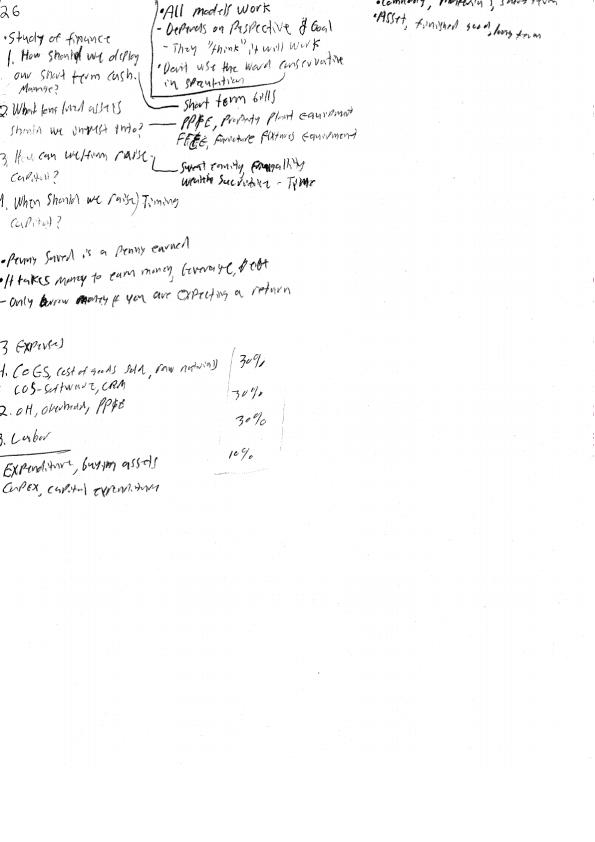 26
•Study of finance
1. How should we deploy
our short term cash.
Manage?
2. What long lived assets
should we invest into?
3. How can we/firm raise
capital?
4. When should we raise) Timing
capital?
•All models work
- Depends on Perspective & Goal
- They "think" it will work
•Don't use the word conservative
in speculation
Short term bills
PP&E, Property Plant equipment
FF&E, Furniture Fixtures Equipment
Sweat equity, frugality
wealth Sacrifice - Time
short term
•Asset, finished good, long term
•Penny saved is a penny earned
•It takes money to earn money, leverage, debt
- Only borrow money if you are expecting a return
3 Expenses
1. COGS, cost of goods sold, raw materials 30%
COS-Software, CRM
2. OH, overhead, PP&E 30%
3. Labor 30%
Expenditure, buying assets 10%
CapEX, capital expenditure